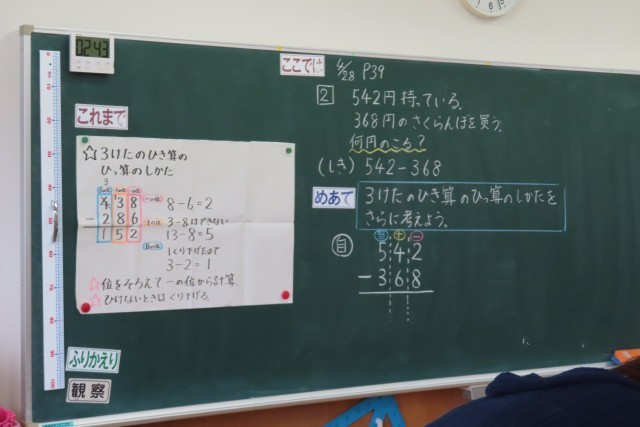 02:43
これまで
☆3けたのひき算の
ひっ算のしかた
3
438
-286
152
8-6=2
3-8はできない
13-8=5
1くり下げたので
3-2=1
☆位をそろえて、一の位から計算。
☆ひけないときはくり下げる。
ふりかえり
観察
ここでは
4/28 P39
2 542円持っている。
368円のさくらんぼを買う。
何円のこる?
(しき) 542-368
めあて
3けたのひき算のひっ算のしかたを
さらに考えよう。
自
百 十 一
542
-368